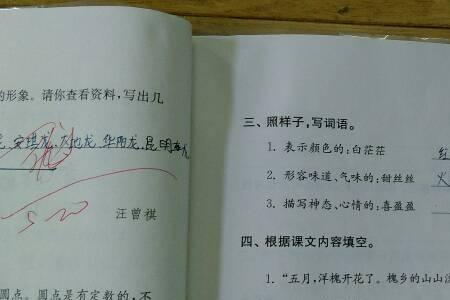 的形象。请你查看资料，写出几
龙、安琪龙、大地龙、华阳龙、昆明龙
520
汪曾祺
圆点。圆点是有定数的，不
三、照样子，写词语。
1. 表示颜色的：白茫茫 红
2. 形容味道、气味的：甜丝丝 火
3. 描写神态、心情的：喜盈盈
四、根据课文内容填空。
1. “五月，洋槐开花了。槐乡的山山洼